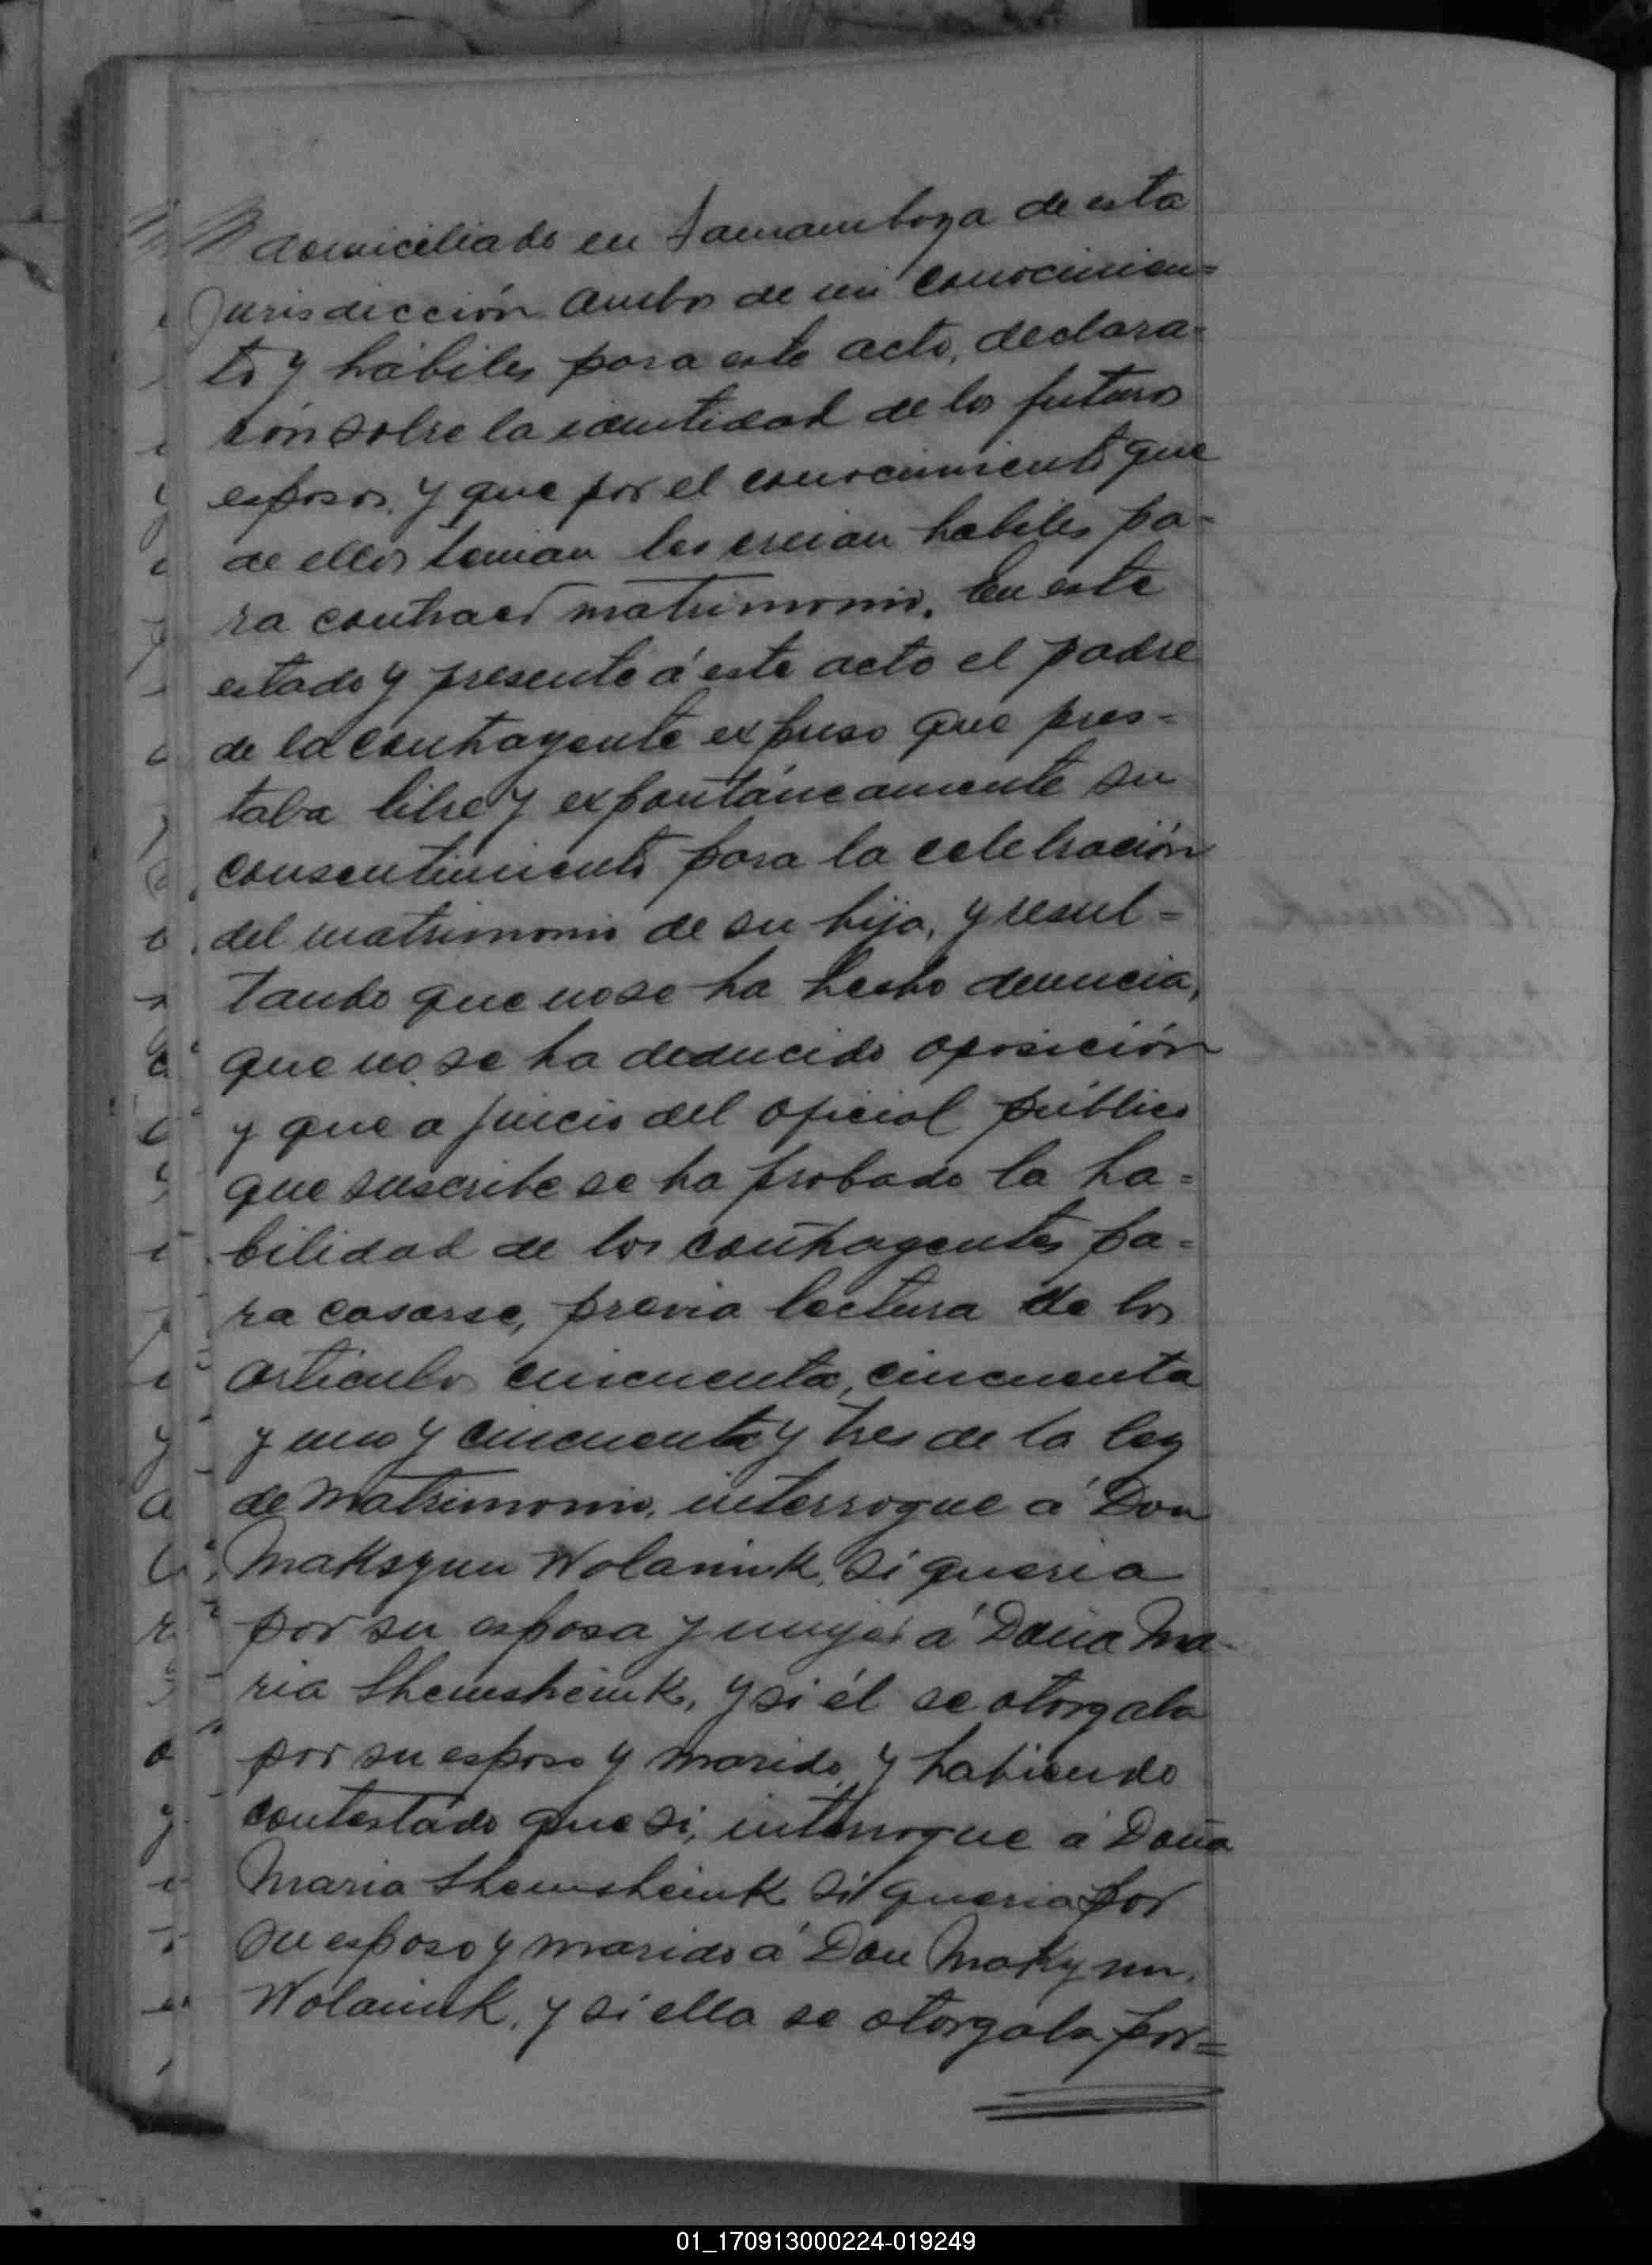 domiciliado en Samambaya de esta
Jurisdicción ambos de mi conocimien=
to y hábiles para este acto, declara=
ron sobre la identidad de los futuros
esposos, y que por el conocimiento que
de ellos tenian los creian habiles pa-
ra contraer matrimonio. En este
estado y presente á este acto el padre
de la contrayente expuso que pres=
taba libre y expontáneamente su
consentimiento para la celebración
del matrimonio de su hija, y resul=
tando que no se ha hecho denuncia,
que no se ha deducido oposición
y que a juicio del oficial público
que suscribe se ha probado la ha=
bilidad de los contrayentes pa=
ra casarse, previa lectura de los
articulos cincuenta, cincuenta
y uno y cincuenta y tres de la ley
de Matrimonio, interrogue á Don
Maksym Wolaniuk, si queria
por su esposa y mujer á Doña Ma-
ria Shemsheiuk, y si él se otorgaba
por su esposo y marido, y habiendo
contestado que si, interrogue á Doña
Maria Shemsheiuk si queria por
su esposo y marido á Don Makym
Wolaniuk, y si ella se otorgaba por=
01_170913000224-019249